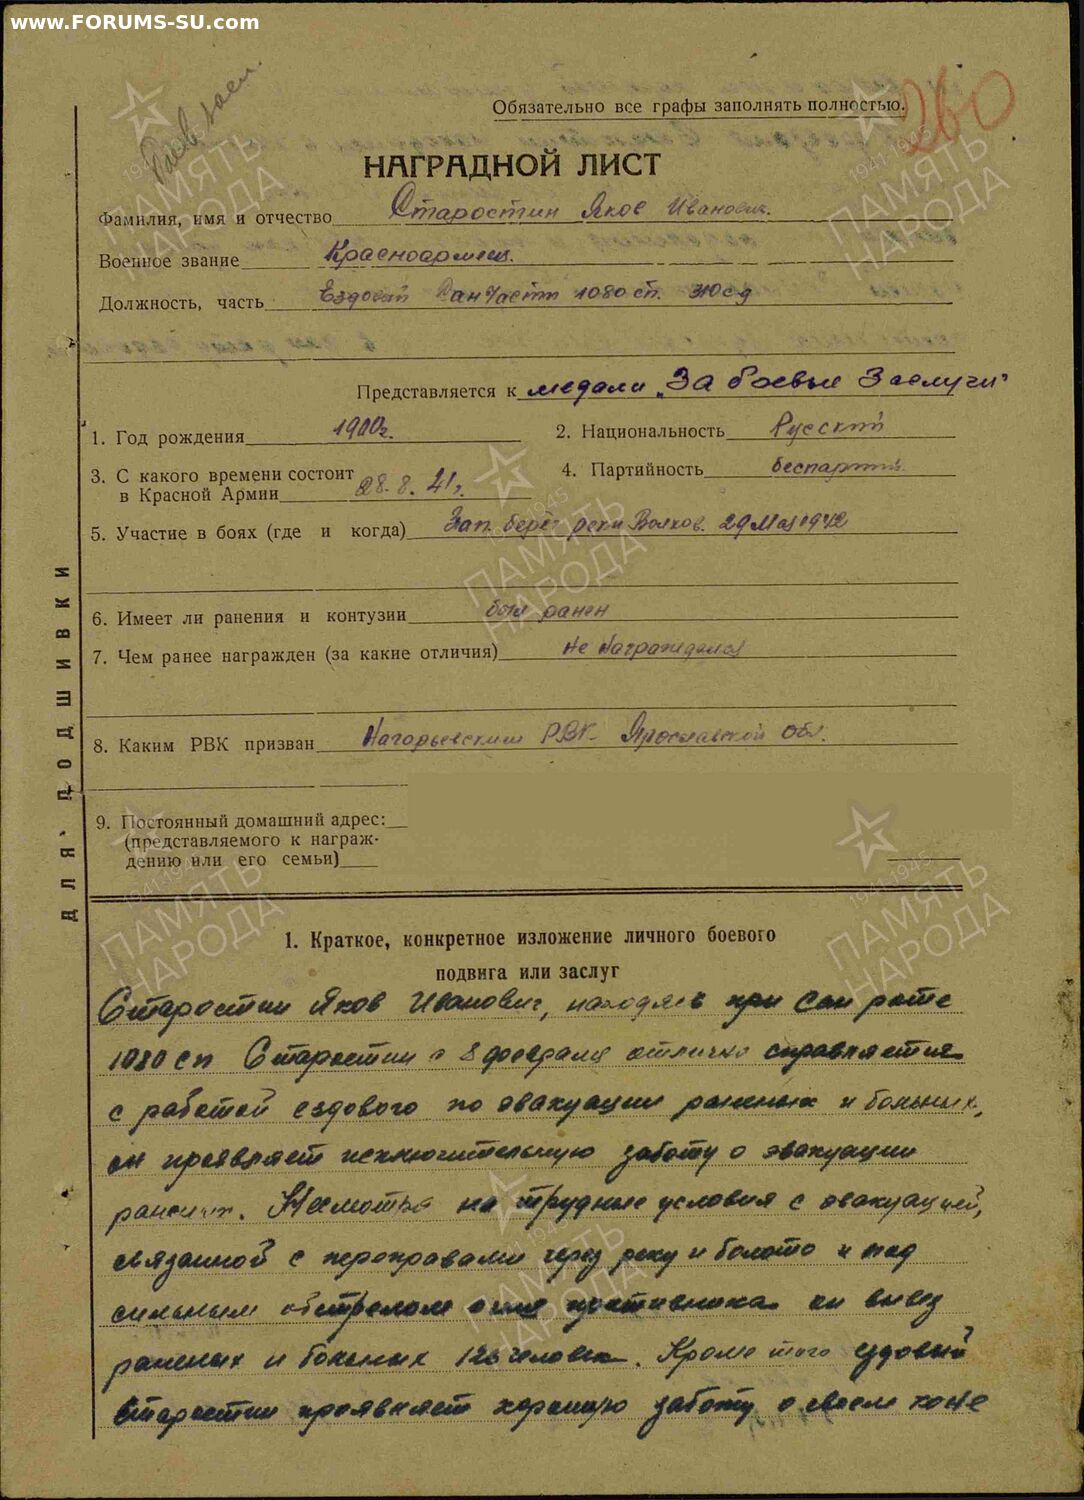 www.FORUMS-SU.com
260
Обязательно все графы заполнять полностью.
НАГРАДНОЙ ЛИСТ
Фамилия, имя и отчество Старостин Яков Иванович.
Военное звание Красноармеец.
Должность, часть Ездовой СанЧасти 1080 сп. 310 сд
Представляется к медали „За боевые Заслуги"
1. Год рождения 1900г. 2. Национальность Русский
3. С какого времени состоит 4. Партийность беспартий.
в Красной Армии 28.8.41г.
5. Участие в боях (где и когда) Зап. берег реки Волхов. 29 Мая 1942
6. Имеет ли ранения и контузии был ранен
7. Чем ранее награжден (за какие отличия) Не Награждался
8. Каким РВК призван Нагорьевским РВК Ярославской Обл.
9. Постоянный домашний адрес:
(представляемого к награж-
дению или его семьи)
ДЛЯ ПОДШИВКИ
1. Краткое, конкретное изложение личного боевого
подвига или заслуг
Старостин Яков Иванович, находясь при Сан роте
1080 сп Старостин с 8 февраля отлично справляется
с работой ездового по эвакуации раненых и больных,
он проявляет исключительную заботу о эвакуации
раненых. Несмотря на трудные условия с эвакуацией,
связанной с переправами через реку и болото и под
сильным обстрелом огня противника он вывез
раненых и больных 126 человек. Кроме того ездовый
Старостин проявляет хорошую заботу о своем коне
ПАМЯТЬ НАРОДА
1941-1945